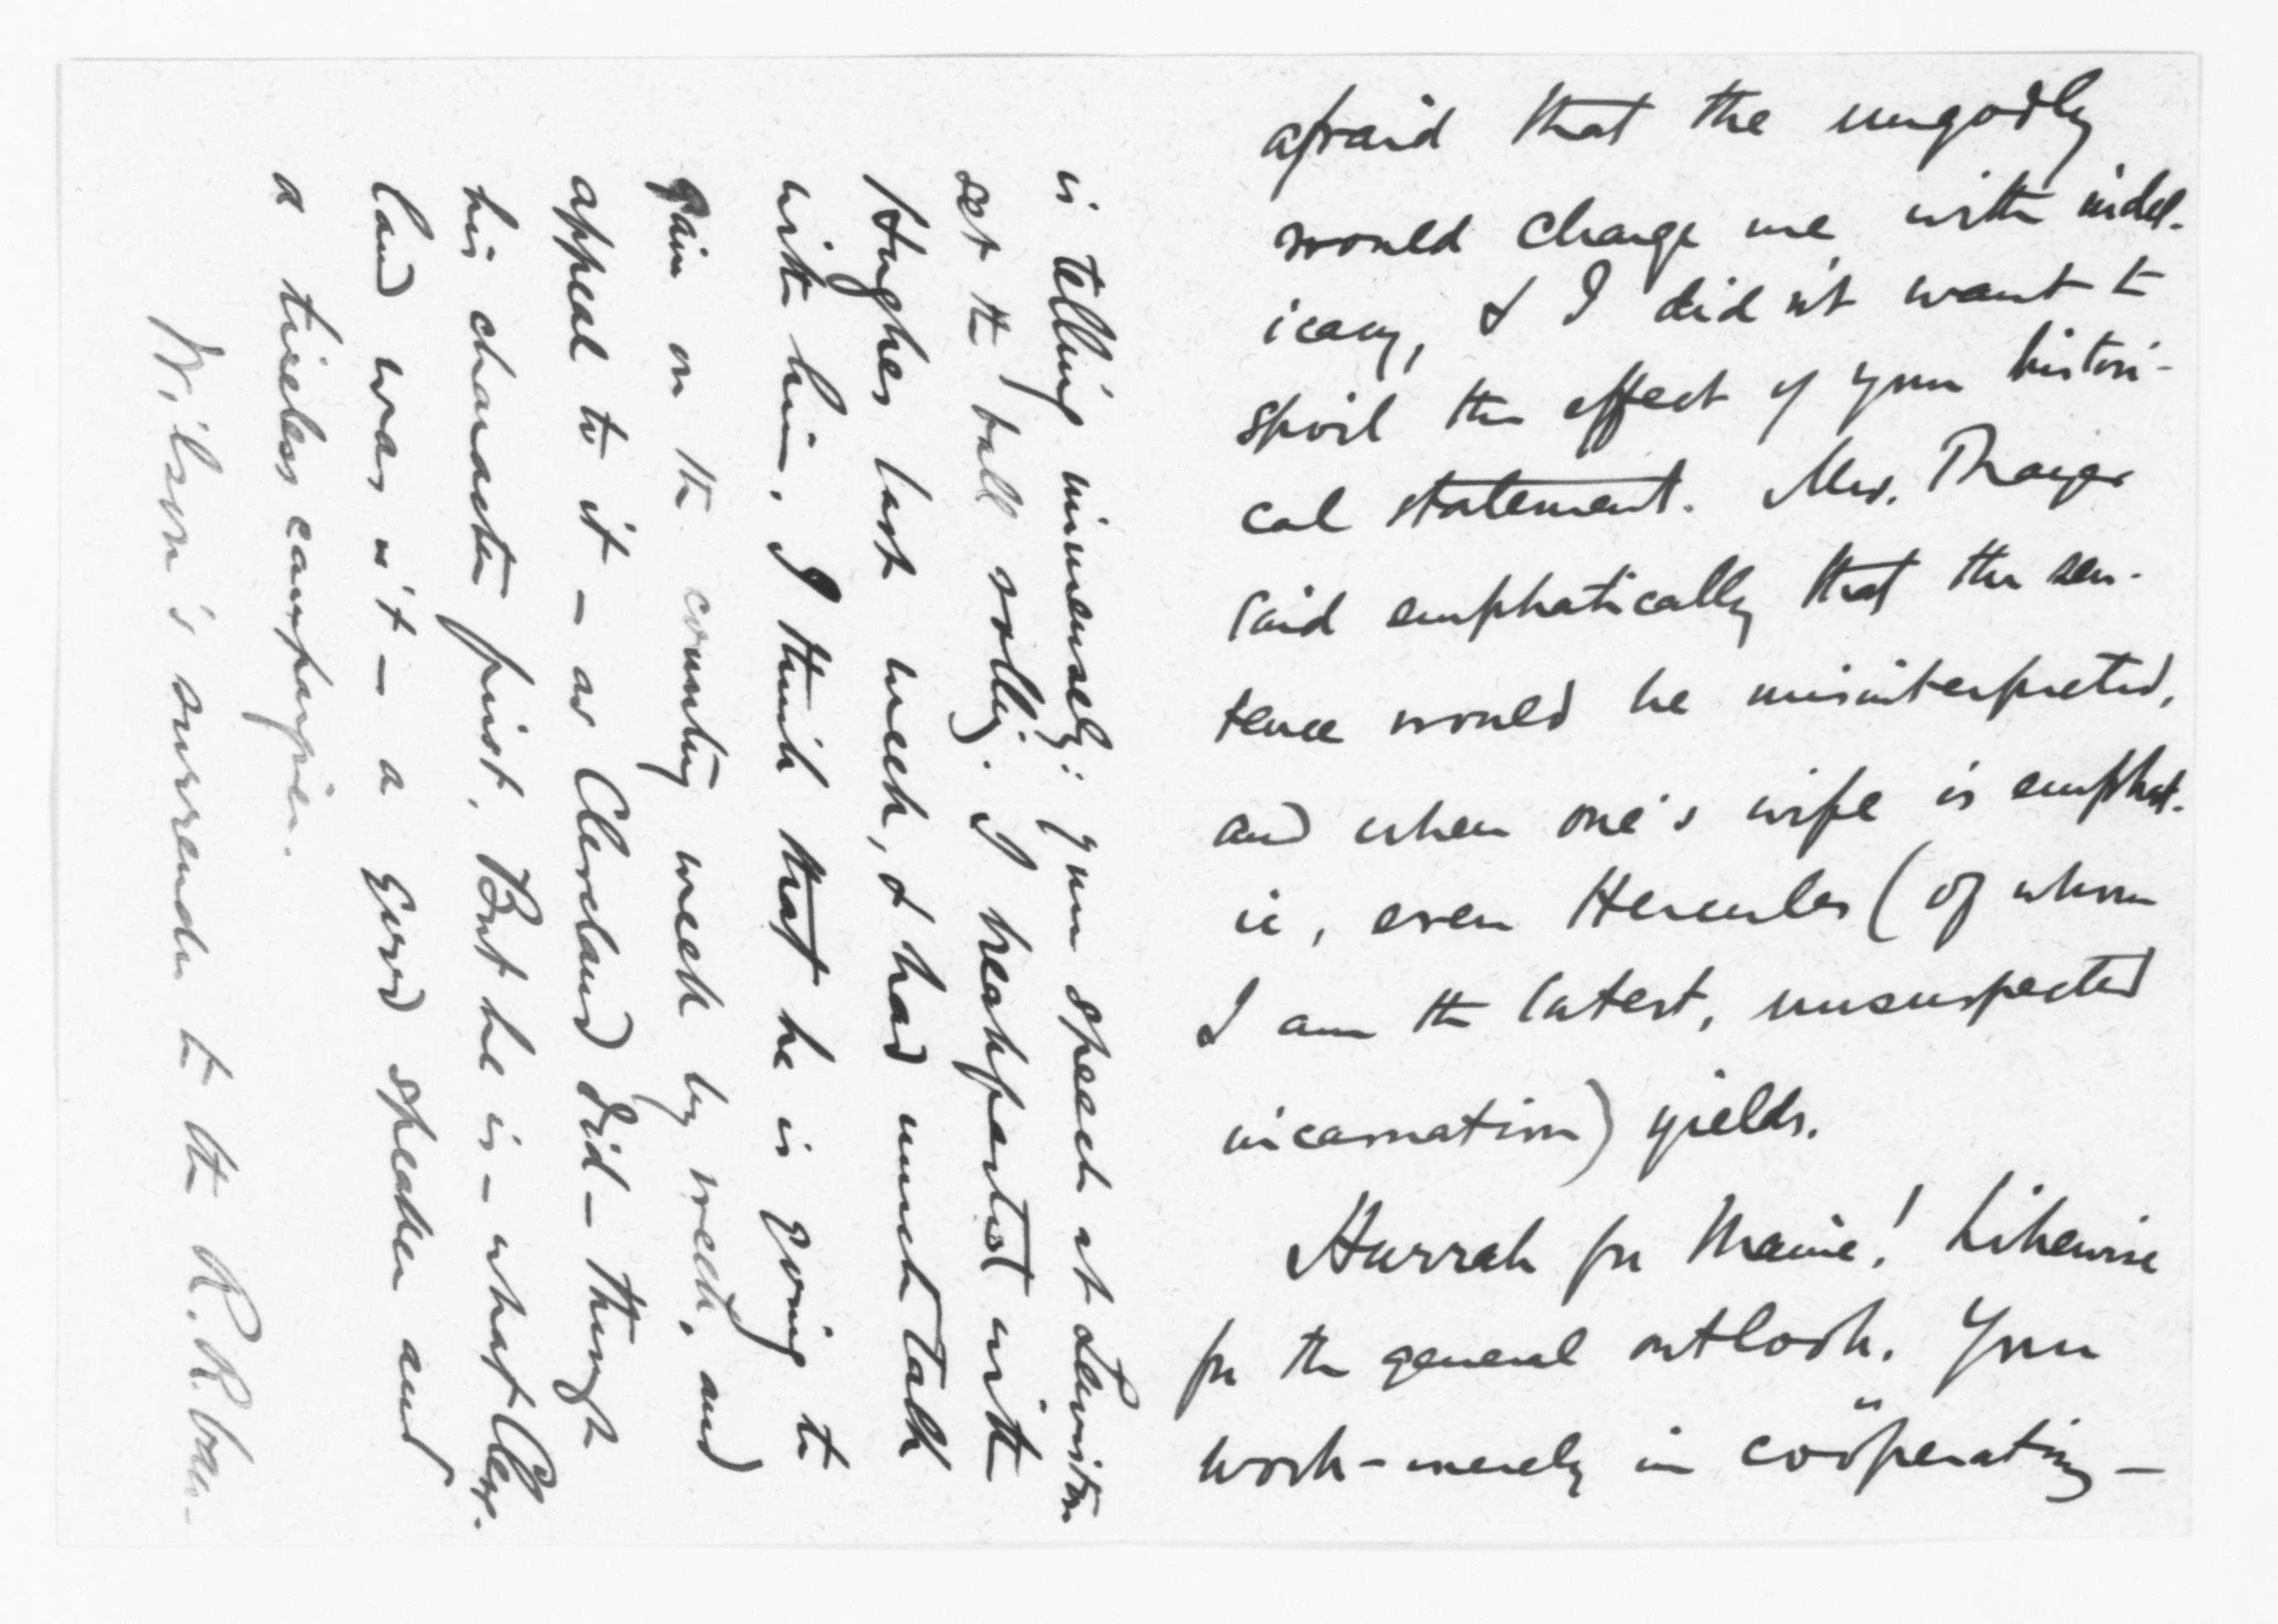 afraid that the ungodly
would charge me with indel-
icacy, & I didn't want to
spoil the effect of your histori-
cal statement. Mrs. Thayer
said emphatically that the sen-
tence would be misinterpreted,
and when one's wife is emphat-
ic, even Hercules (of whom
I am the latest, unsuspected
incarnation) yields.
Hurrah for Maine! Likewise
for the general outlook. Your
work - merely in coöperating -
is telling immensely: your speech at Lewiston
set the ball rolling. I breakfasted with
Hughes last week, & had much talk
with him. I think that he is going to
gain on the country week by week, and
appeal to it - as Cleveland did - through
his character first. But he is - what Cleve-
land wasn't - a good speaker and
a tireless campaigner.
Wilson's surrender to the R.R. ban-